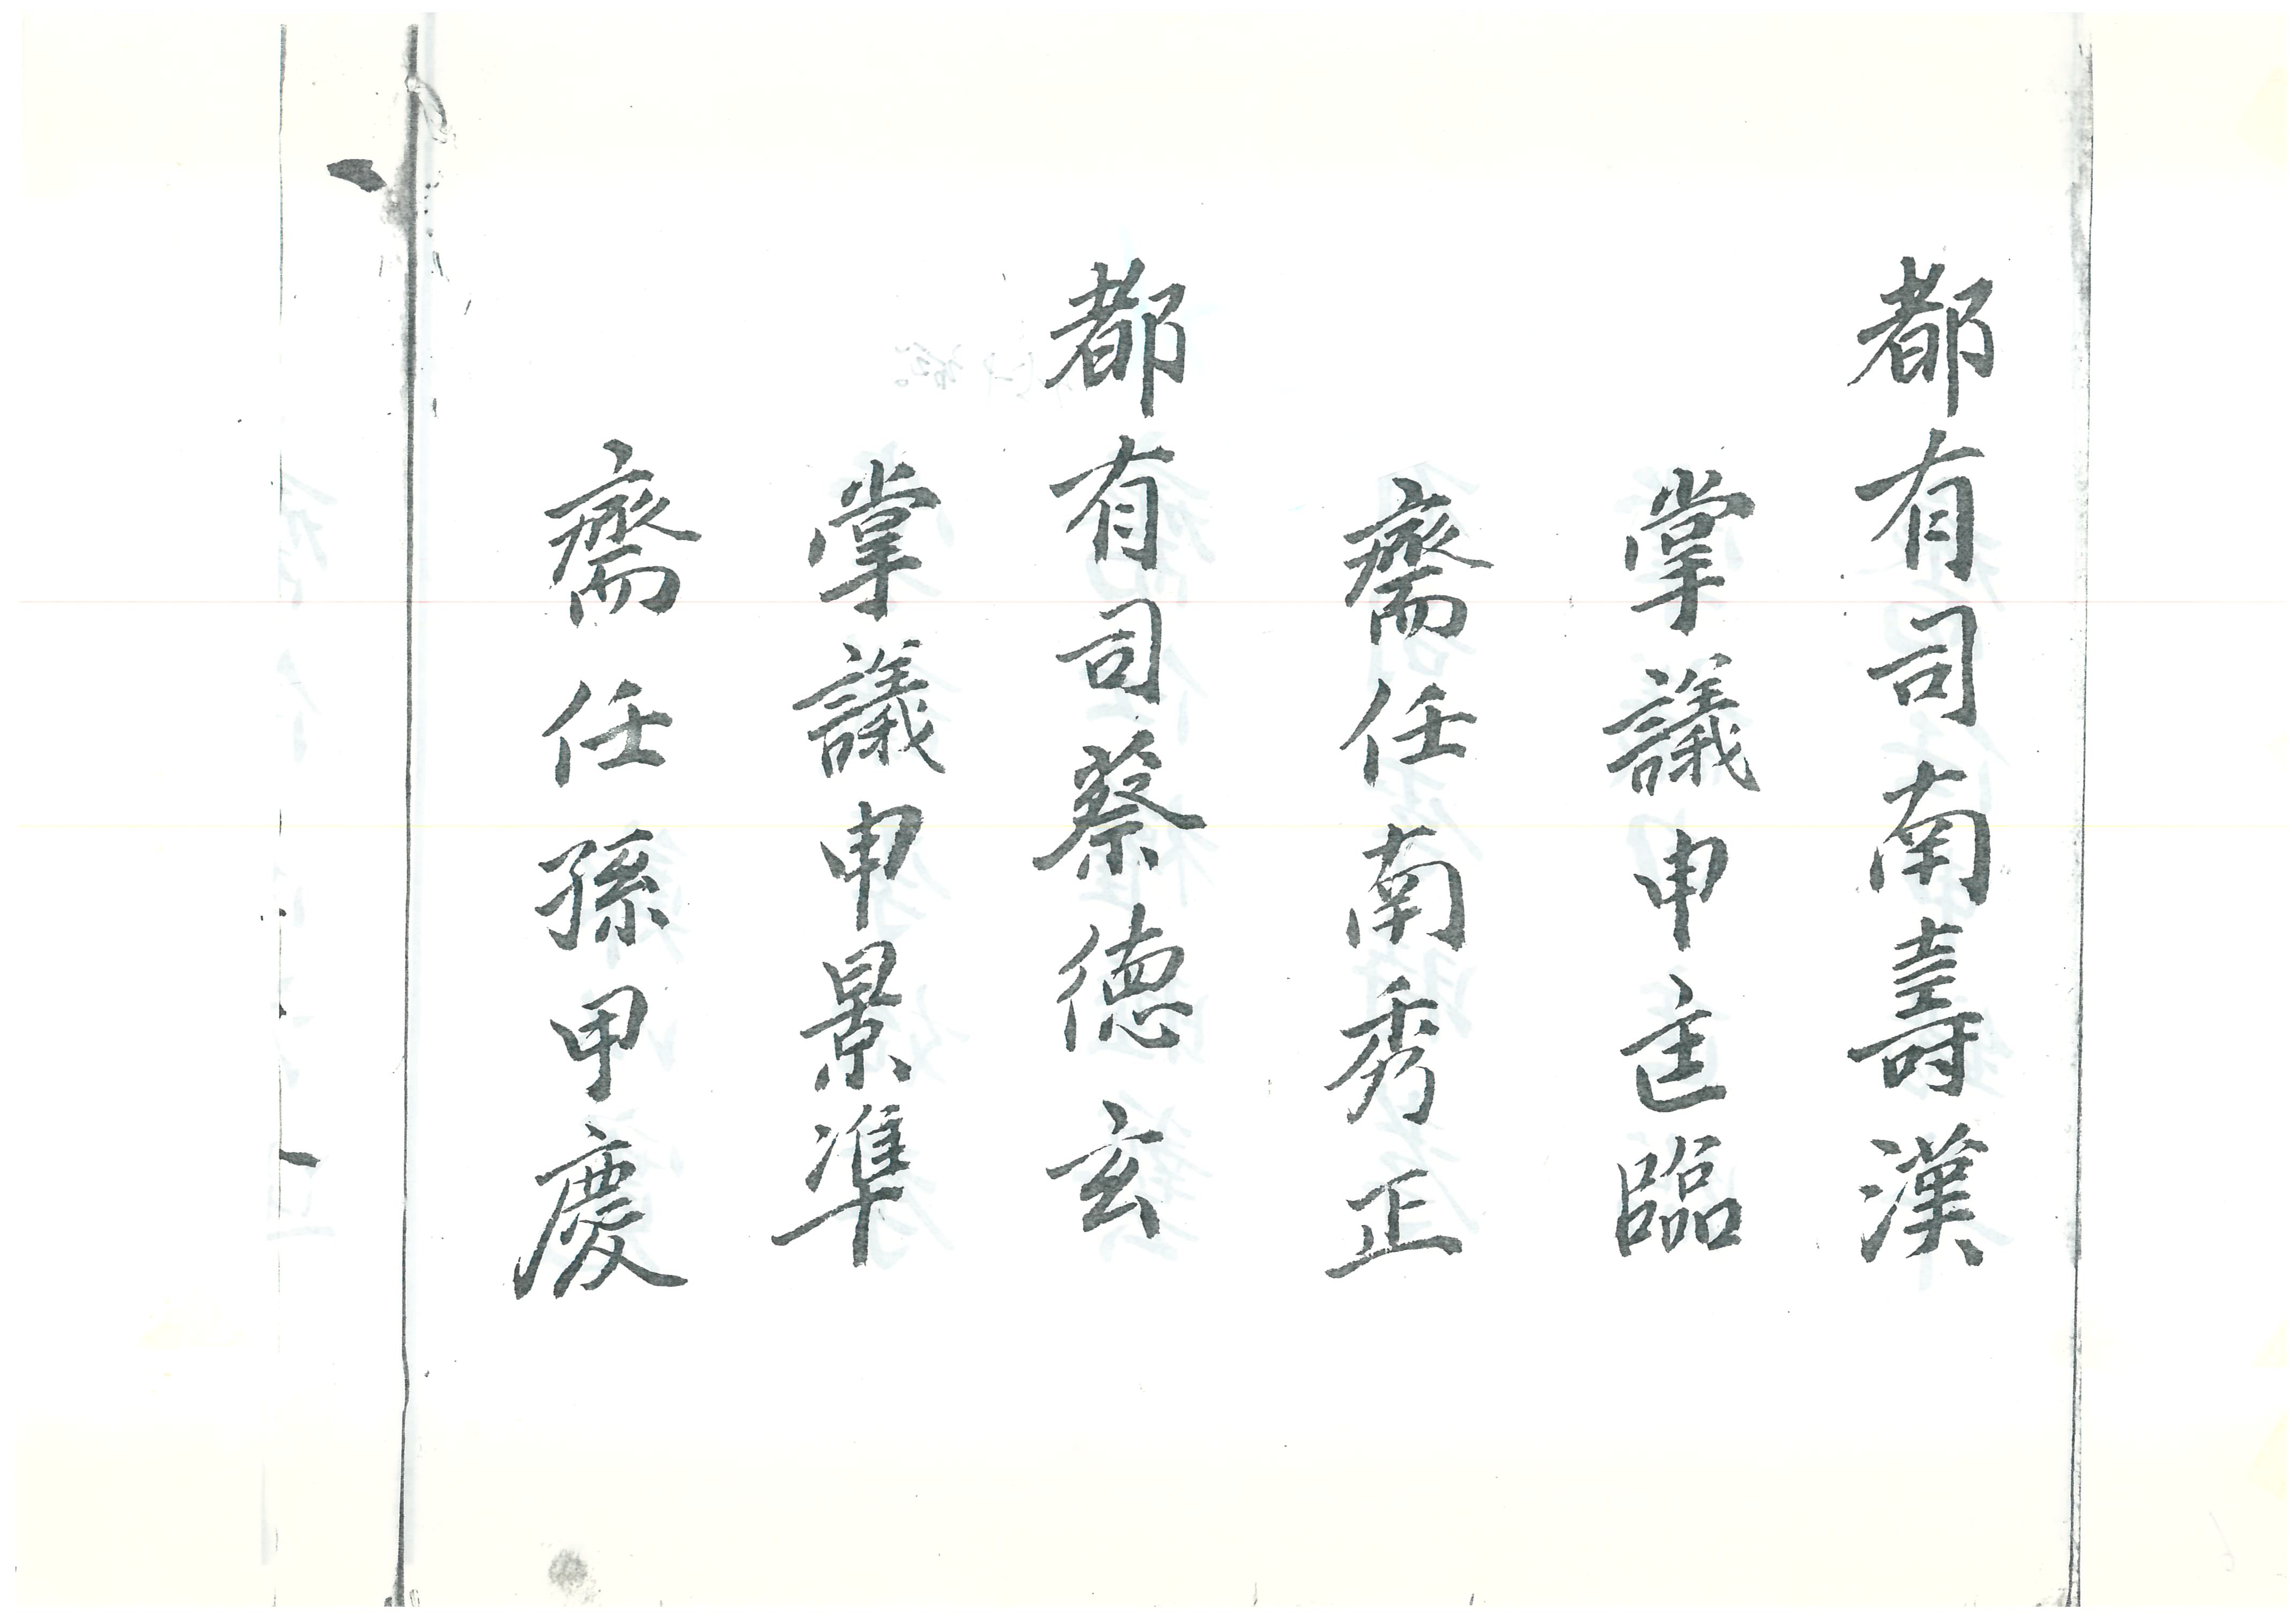 都有司南壽漢
掌議申匡臨
齋任南秀正
都有司蔡德玄
掌議申景準
齋任孫甲慶